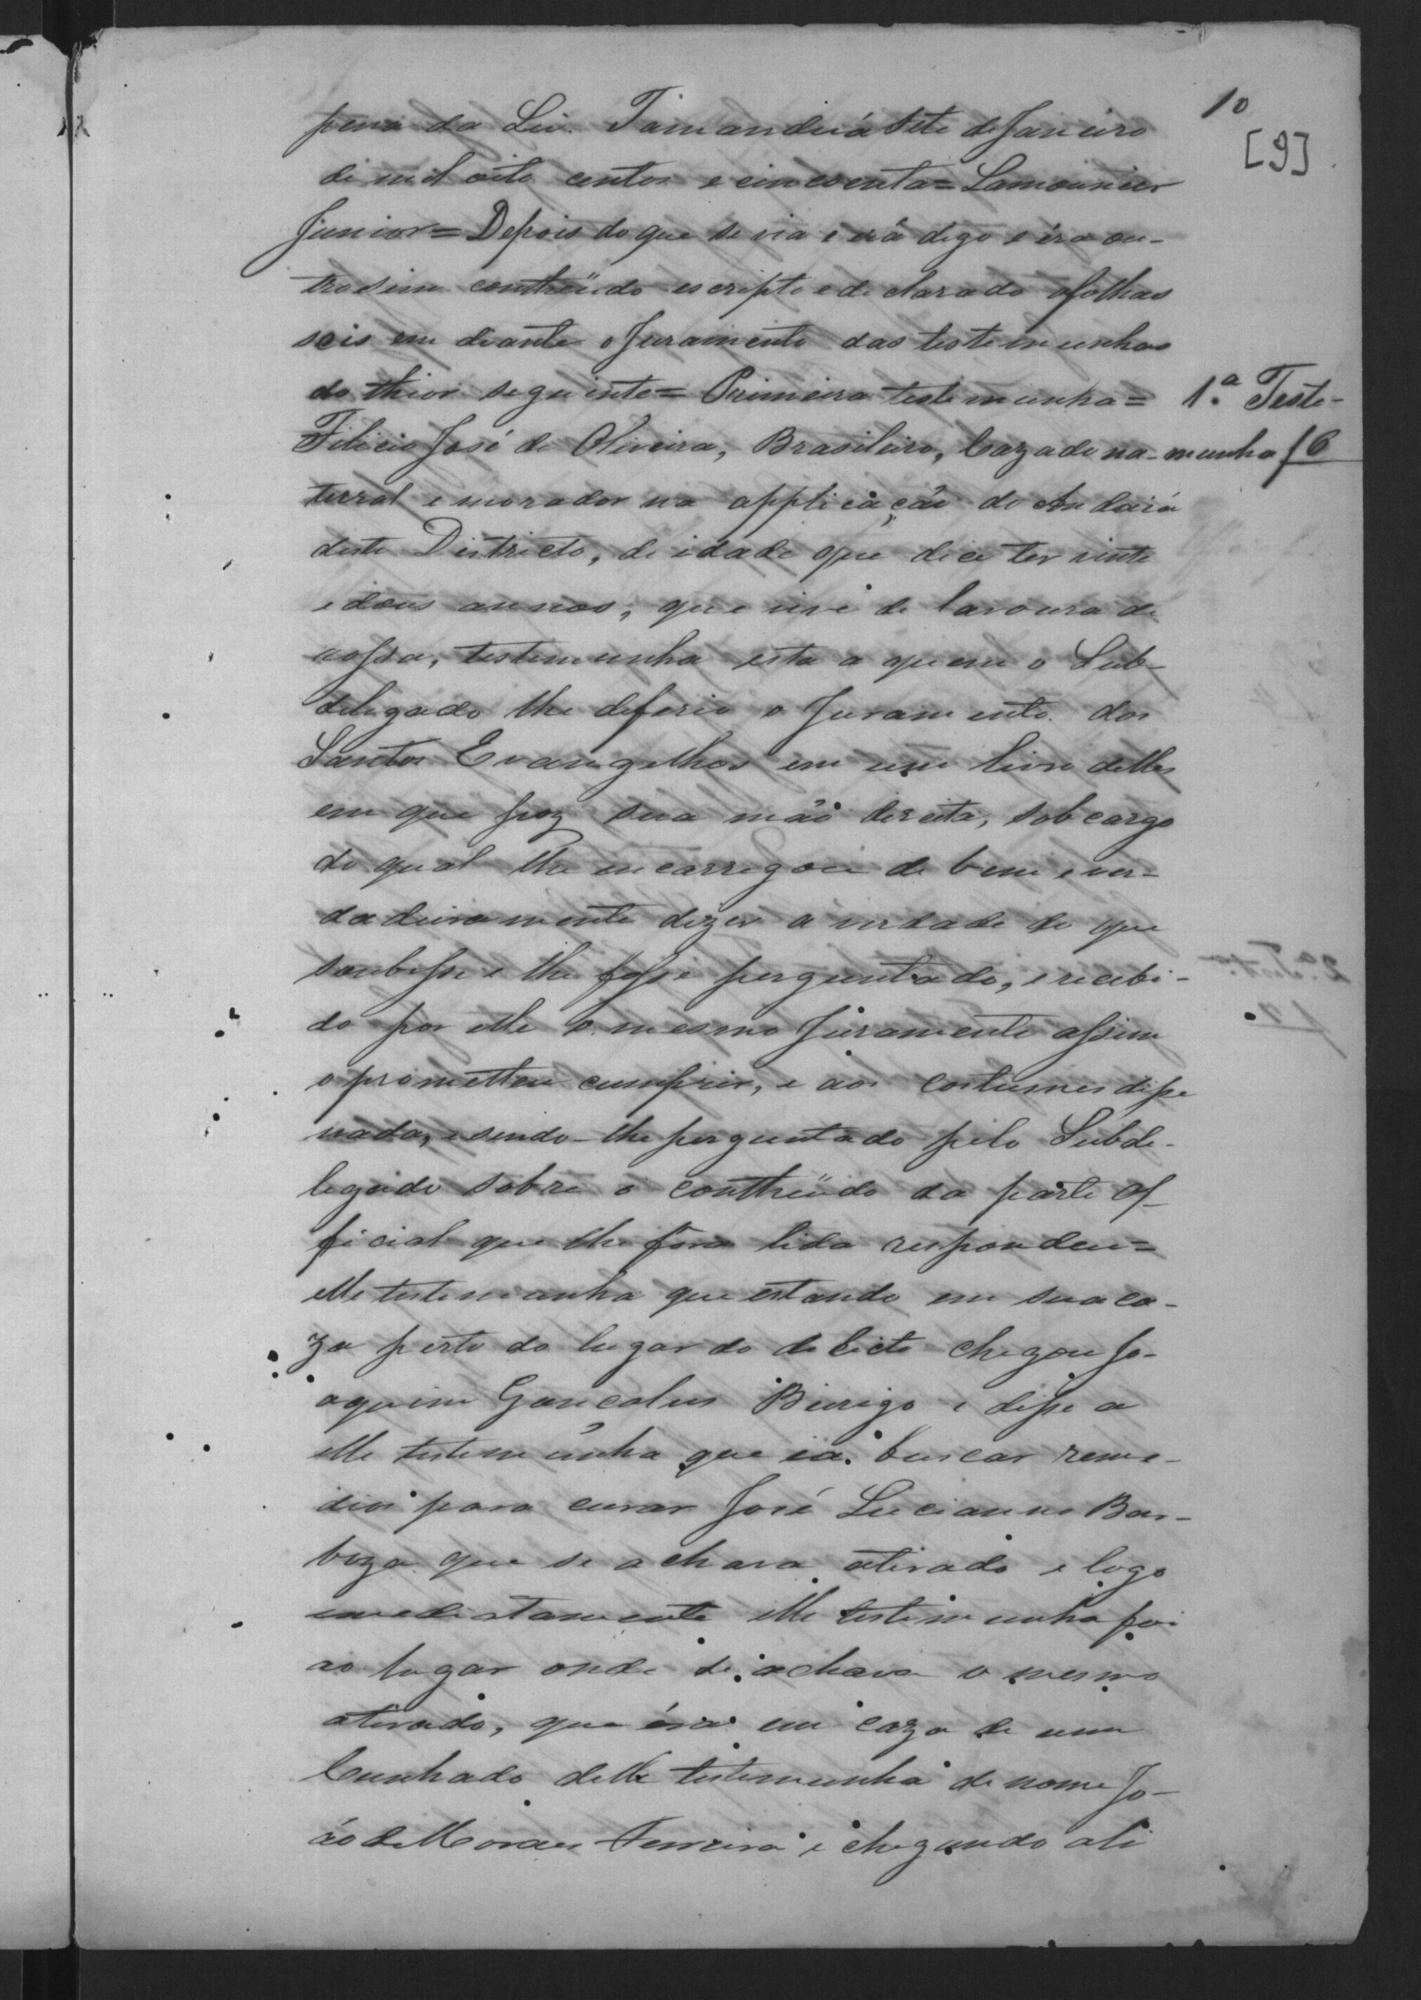 10
[9]
pena da Lei. Tamanduá sete de Janeiro
de mil oito centos e cincoenta = Lamounier
Junior = Depois do que se via e erâ digo e éra ou-
trosim conthëudo escripto e declarado afolhas
seis em deante o Juramento das testemunhas
do thior seguinte = Primeira testemunha =
1.ª Teste-
munha f 6
Felicio José de Oliveira, Brasileiro, Cazado na-
tural e morador na applicação do Andaiá
deste Districto, de idade que dice ter vinte
e dous annos, que vive de lavoura de
rossa, testemunha esta a quem o Sub-
delegado lhe deferio o Juramento dos
Santos Evangelhos em um livro delles
em que poz sua mão direita, sob cargo
do qual lhe encarregou de bem e ver-
dadeiramente dizer a verdade do que
soubesse e lhe fosse perguntado, e recebi-
do por elle o mesmo Juramento assim
o prometteu cumprir, e aos costumes disse
nada, e sendo-lhe perguntado pelo Subde-
legado sobre o conthëudo da parte of-
ficial que lhe fora lida respondeu =
elle testemunha que estando em sua ca-
za perto do lugar do delicto chegou Jo-
aquim Gonçalves Bi e disse a
elle testemunha que ia buscar reme-
dios para curar José Lucianno Bar-
boza que se achava atirado e logo
imediatamente elle testemunha foi
ao lugar onde se achava o mesmo
atirado, que éra em caza de um
Cunhado delle testemunha de nome Jo-
ão de Moraes Ferreira e chegando ali